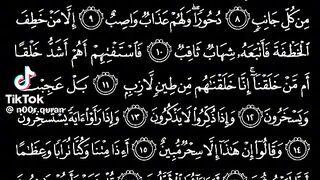 مِن كُلِّ جَانِبٍ ٨ دُحُورًا وَلَهُمْ عَذَابٌ وَاصِبٌ ٩ إِلَّا مَنْ خَطِفَ
الْخَطْفَةَ فَأَتْبَعَهُ شِهَابٌ ثَاقِبٌ ١٠ فَاسْتَفْتِهِمْ أَهُمْ أَشَدُّ خَلْقًا
أَم مَّنْ خَلَقْنَا إِنَّا خَلَقْنَاهُم مِّن طِينٍ لَّازِبٍ ١١ بَلْ عَجِبْتَ
وَيَسْخَرُونَ ١٢ وَإِذَا ذُكِّرُوا لَا يَذْكُرُونَ ١٣ وَإِذَا رَأَوْا آيَةً يَسْتَسْخِرُونَ
١٤ وَقَالُوا إِنْ هَٰذَا إِلَّا سِحْرٌ مُّبِينٌ ١٥ أَءِذَا مِتْنَا وَكُنَّا تُرَابًا وَعِظَامًا
TikTok
@n00r.quran